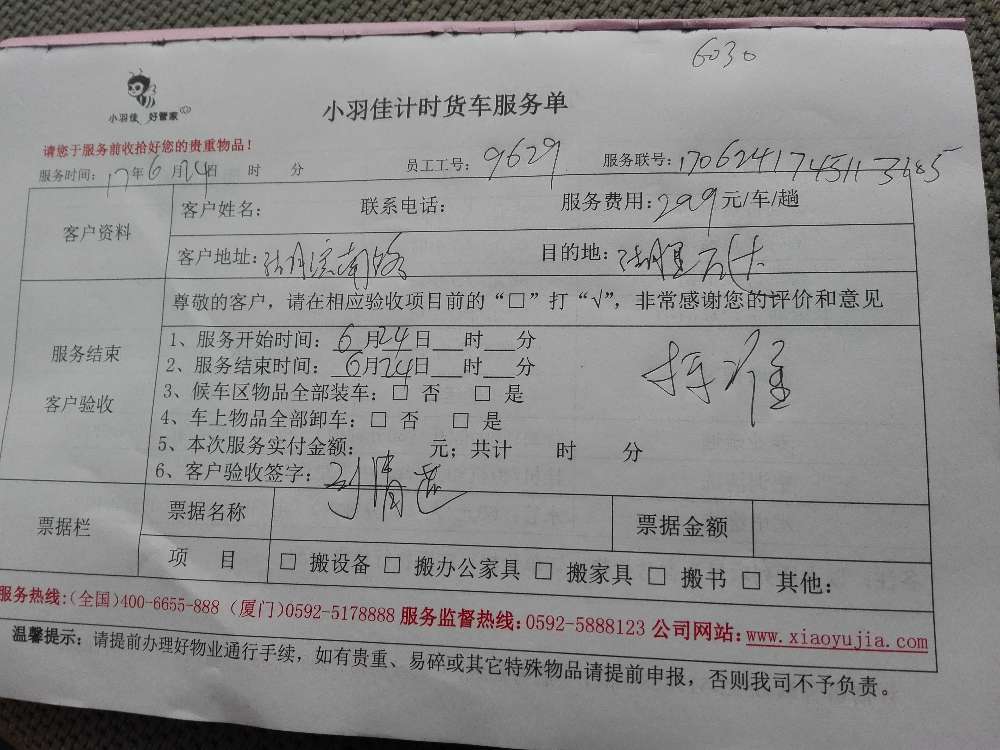 6030
小羽佳 好管家
小羽佳计时货车服务单
请您于服务前收拾好您的贵重物品！
服务时间：17年6月24日 时 分 员工工号：9629 服务联号：
客户资料
客户姓名： 联系电话： 服务费用：299元/车/趟
客户地址： 南路 目的地：
尊敬的客户，请在相应验收项目前的“□”打“√”，非常感谢您的评价和意见
服务结束
客户验收
1、服务开始时间：6月24日___时___分
2、服务结束时间：6月24日___时___分
3、候车区物品全部装车：□ 否 □ 是
4、车上物品全部卸车：□ 否 □ 是
5、本次服务实付金额： 元；共计 时 分
6、客户验收签字：
票据栏
票据名称 票据金额
项 目 □ 搬设备 □ 搬办公家具 □ 搬家具 □ 搬书 □ 其他：
服务热线：(全国)400-6655-888 (厦门)0592-5178888 服务监督热线：0592-5888123 公司网站：www.xiaoyujia.com
温馨提示：请提前办理好物业通行手续，如有贵重、易碎或其它特殊物品请提前申报，否则我司不予负责。